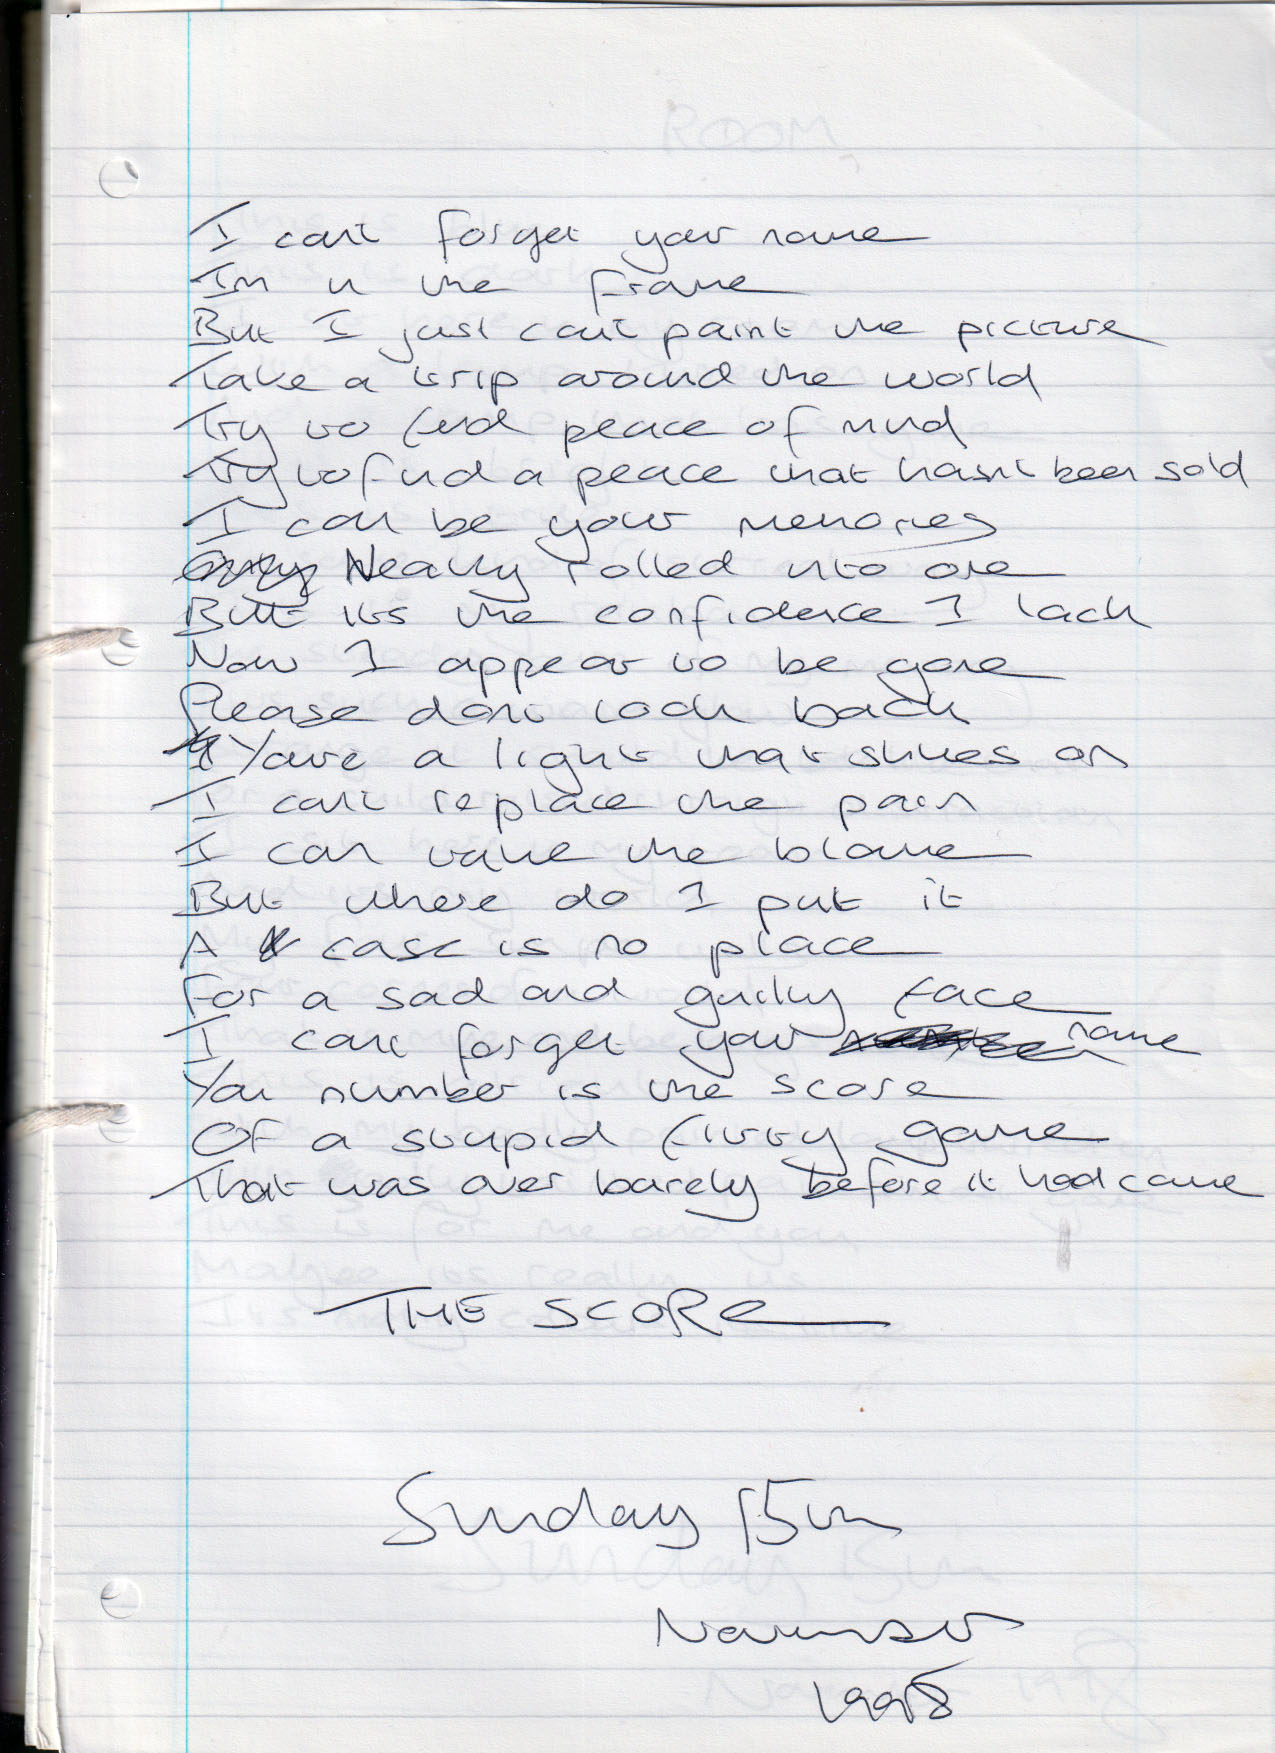 I cant forget your name
Im in the frame
But I just cant paint the picture
Take a trip around the world
Try to find peace of mind
Try to find a peace that hasnt been sold
I can be your memories
Neatly rolled into one
But its the confidence I lack
Now I appear to be gone
Please dont look back
Youre a light that shines on
I cant replace the pain
I can take the blame
But where do I put it
A case is no place
For a sad and guilty face
I cant forget your name
You number is the score
Of a stupid flirty game
That was over barely before it had came
THE SCORE
Sunday 15th
November
1998